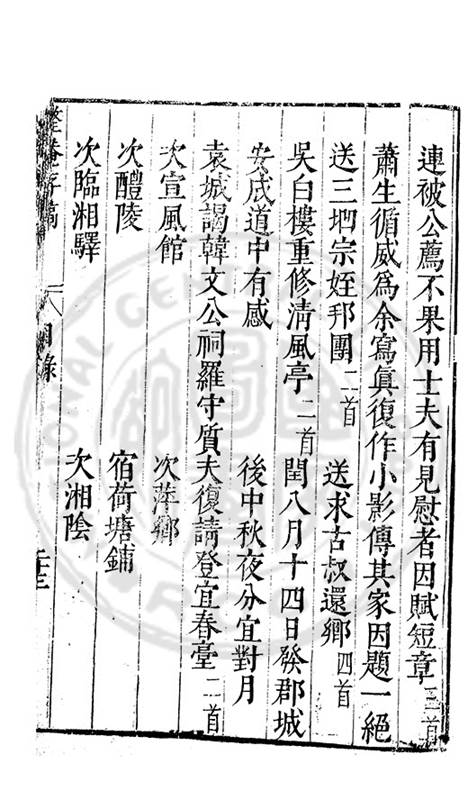 連被公薦不果用士夫有見慰者因賦短章首
蕭生循威爲余寫眞復作小影傳其家因題一絕
送三宗姪邦團二首　送求古叔還鄉四首
吳白樓重修清風亭二首　閏八月十四日發郡城
安成道中有感　後中秋夜分宜對月
袁城謁韓文公祠羅守質夫復請登宜春臺二首
次宣風館　次萍鄉
次醴陵　宿荷塘鋪
次臨湘驛　次湘陰
整菴存稿　目錄